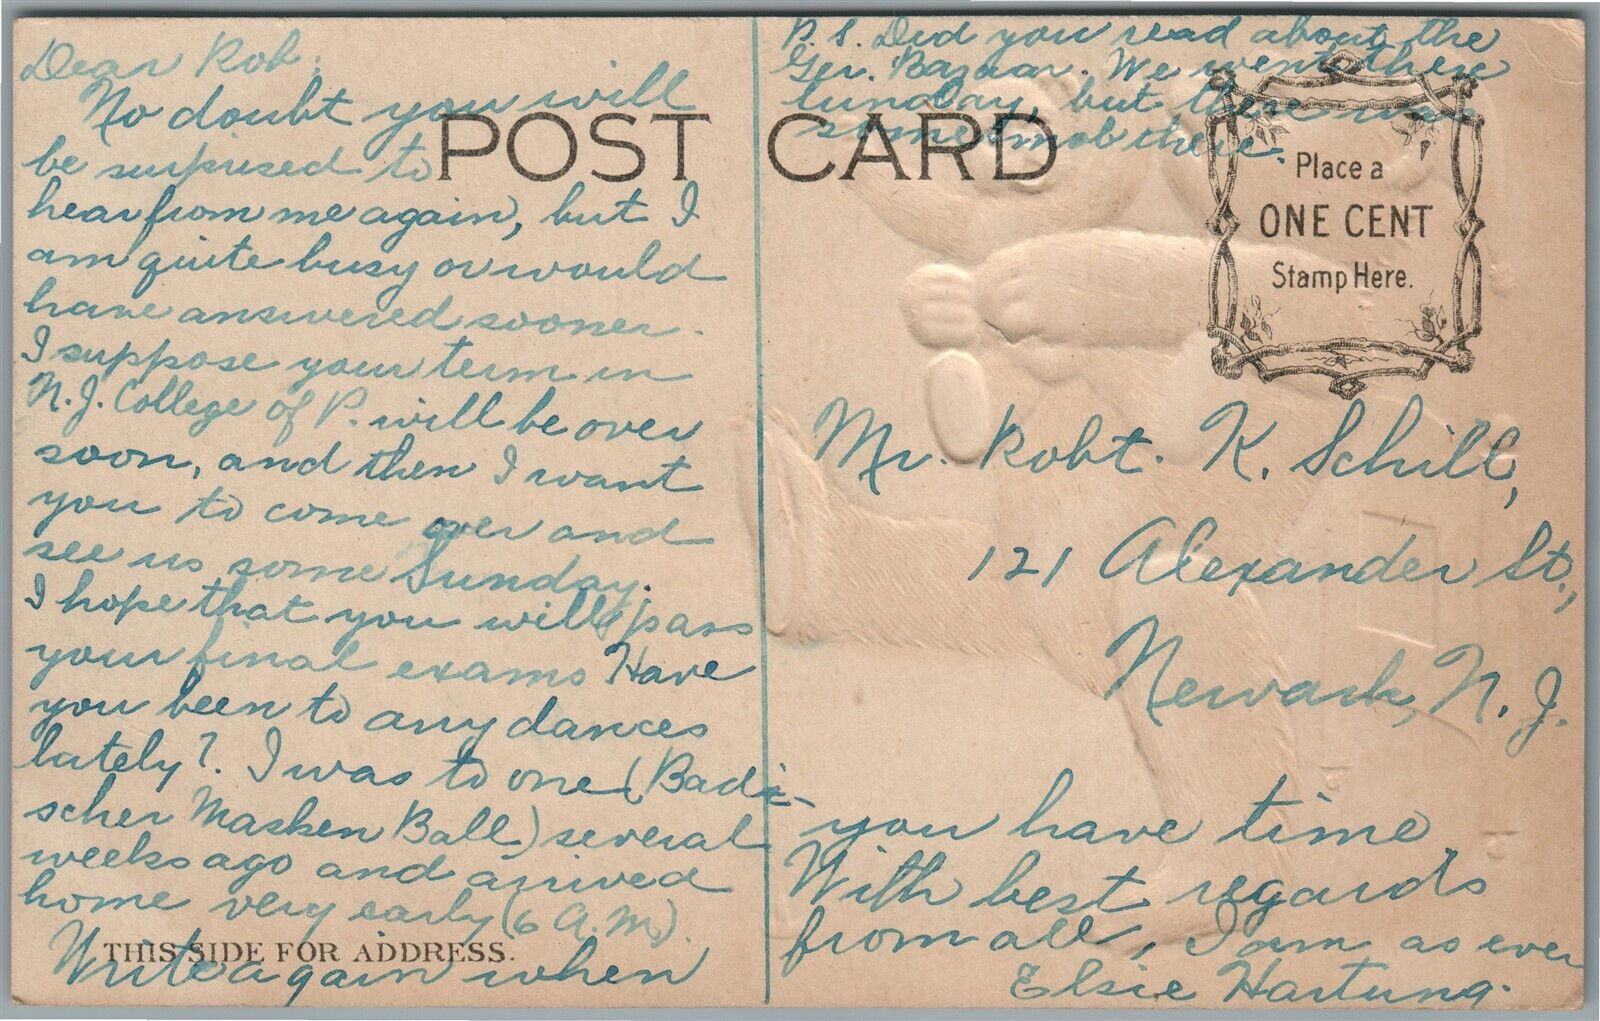 Dear Rob:
No doubt you will
be surprised to
hear from me again, but I
am quite busy or would
have answered sooner.
I suppose your term in
N.J. College of P. will be over
soon, and then I want
you to come over and
see us some Sunday.
I hope that you will pass
your final exams Have
you been to any dances
lately? I was to one (Badi-
scher Masken Ball) several
weeks ago and arrived
home very early (6 A.M.).
Write again when
THIS SIDE FOR ADDRESS.
POST CARD
P. S. Did you read about the
Ger. Bazaar. We went there
Sunday, but there was
some mob there.
Place a
ONE CENT
Stamp Here.
Mr. Robt. K. Schill,
121 Alexander St.,
Newark, N. J.
you have time
With best regards
from all, I am as ever
Elsie Hartung.